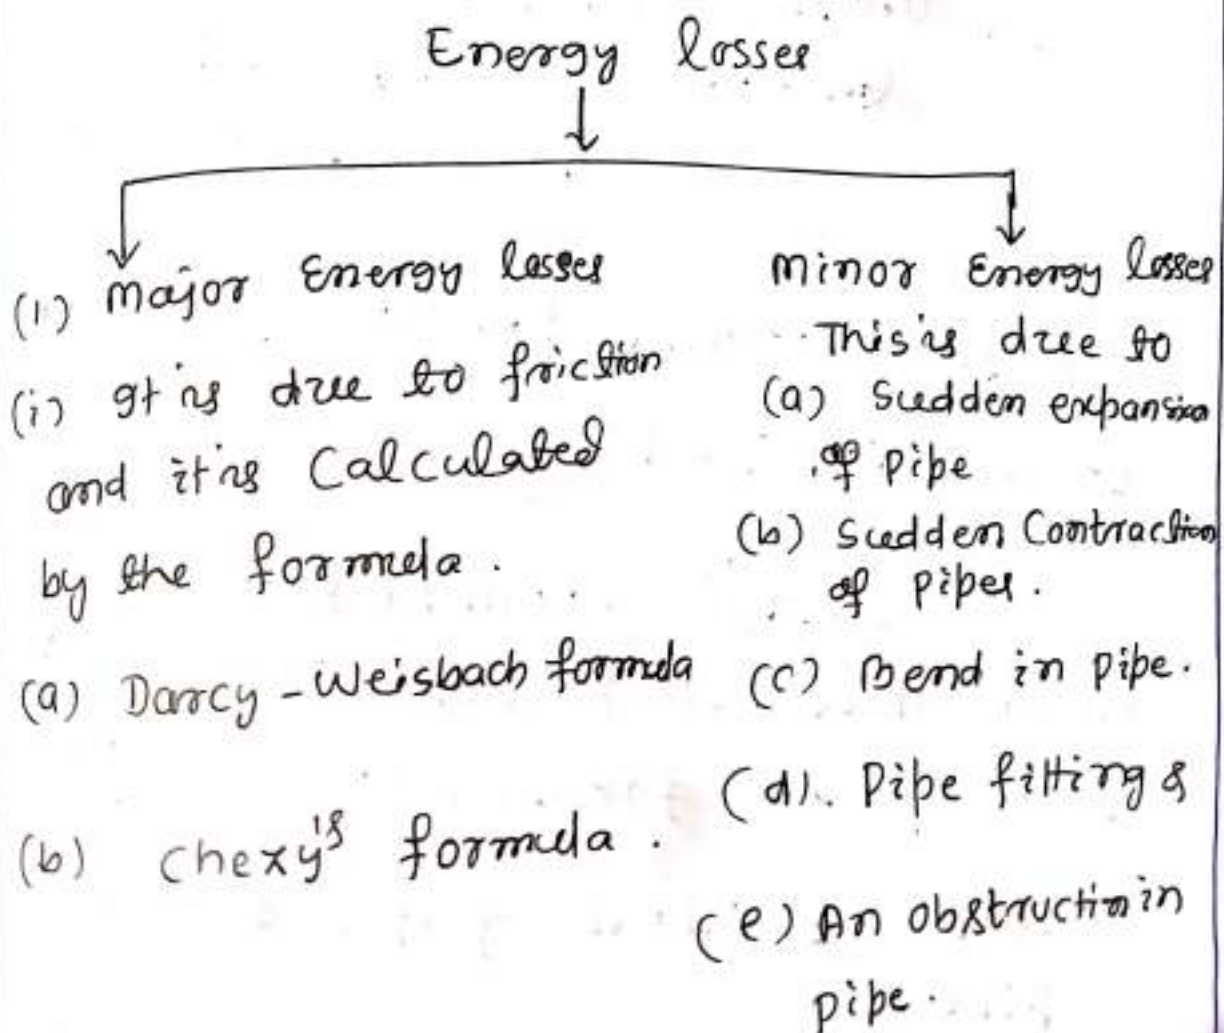 Energy losses
(1) Major Energy losses
(i) It is due to friction
and it is Calculated
by the formula.
(a) Darcy - Weisbach formula
(b) Chexy's formula.
Minor Energy losses
This is due to
(a) Sudden expansion
of pipe
(b) Sudden Contraction
of pipes.
(c) Bend in pipe.
(d). Pipe fitting &
(e) An obstruction in
pipe.